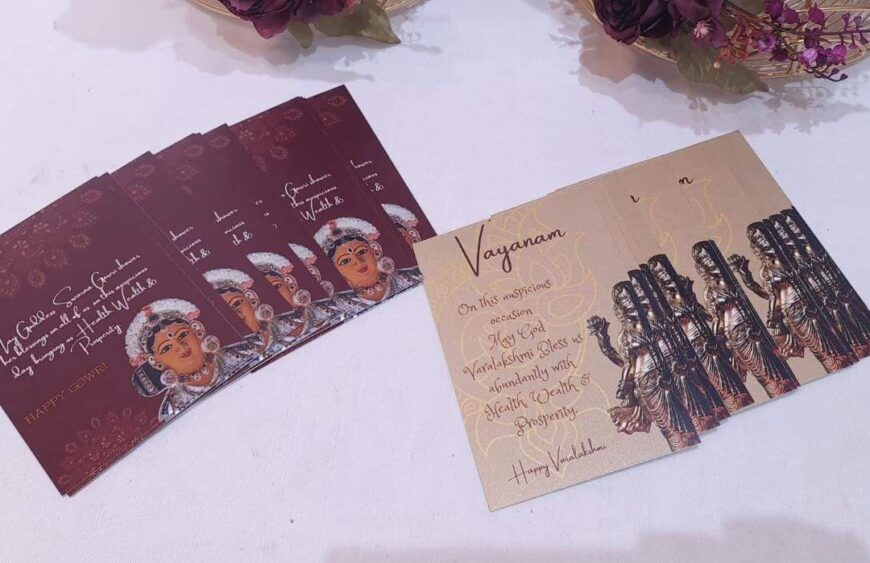 May Goddess Swarna Gowri shower
her blessings on all of us on this auspicious
day bringing us Health Wealth &
Prosperity
HAPPY GOWRI
shower
Gowri shower
this auspicious
Wealth &
Vayanam
On this auspicious
occasion
May God
Varalakshmi Bless us
abundantly with
Health, Wealth &
Prosperity.
Happy Varalakshmi